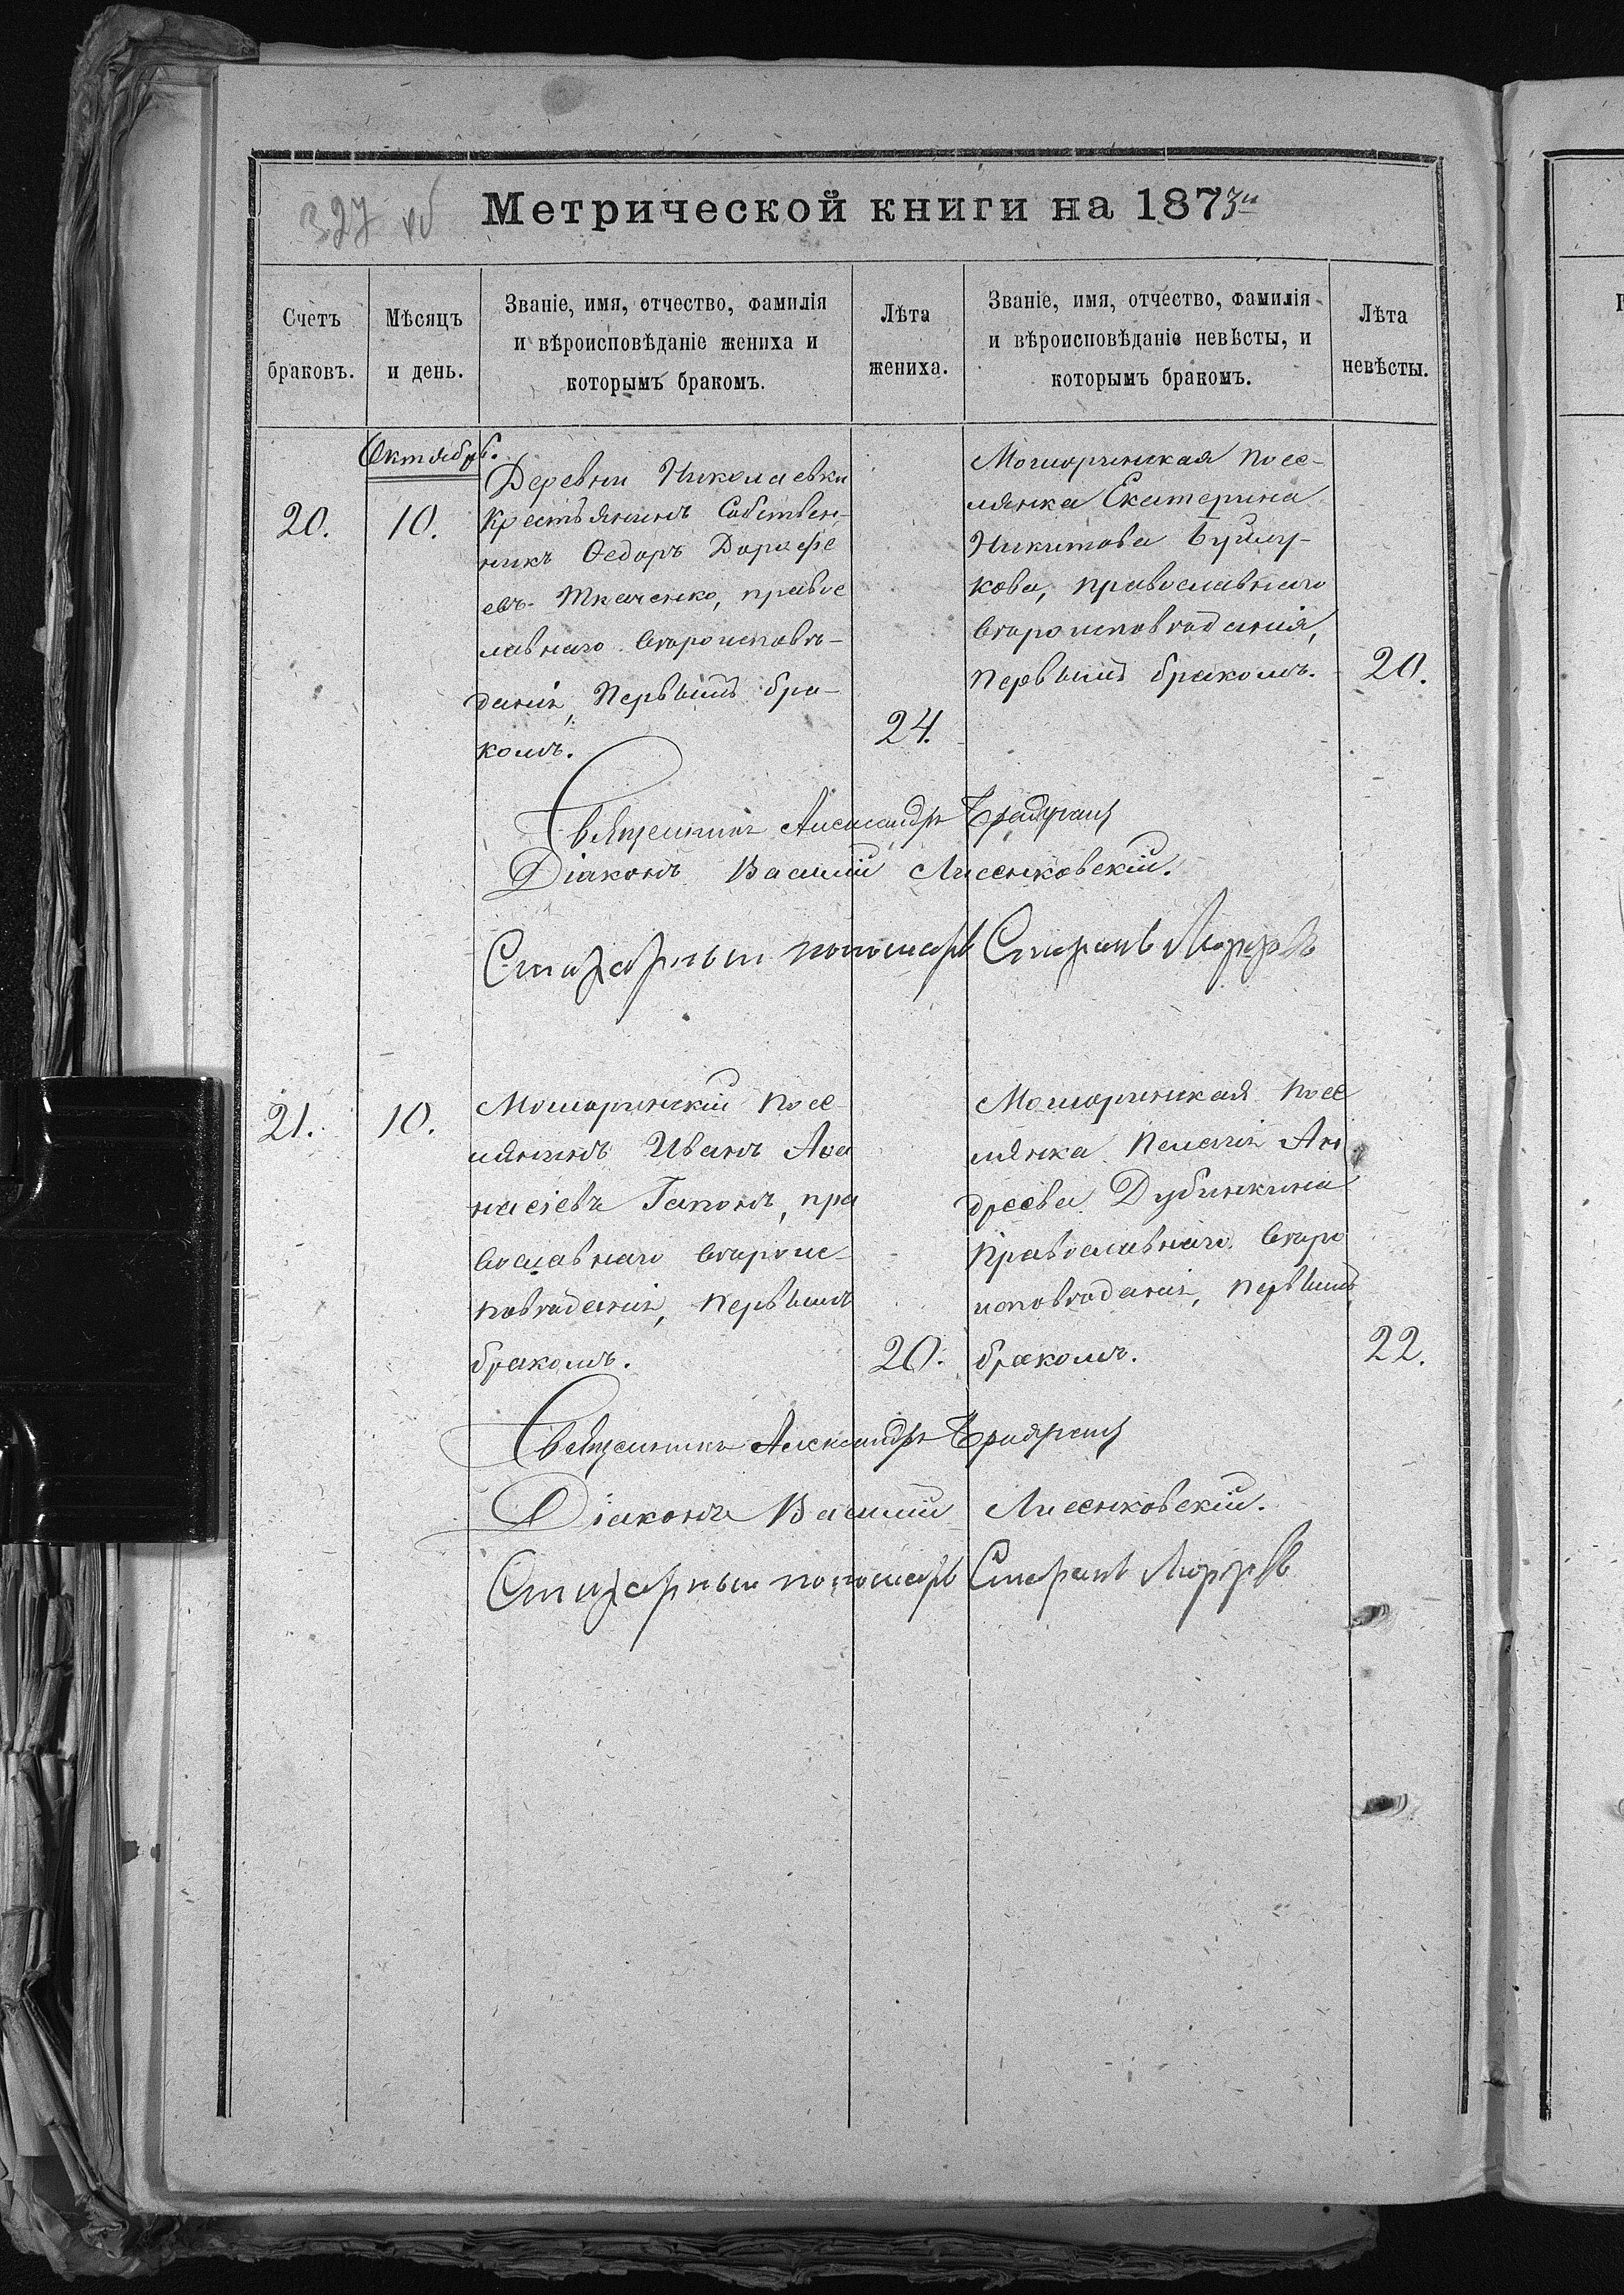 327 об
Метрической книги на 1873й
Счетъ браковъ.
Мѣсяцъ и день.
Званіе, имя, отчество, фамилія
и вѣроисповѣданіе жениха и
которымъ бракомъ.
Лѣта жениха.
Званіе, имя, отчество, фамилія
и вѣроисповѣданіе невѣсты, и
которымъ бракомъ.
Лѣта невѣсты.
Октябрь.
20.
10.
Деревни Николаевки
Крестьянинъ Собствен-
никъ Ѳедоръ Дорофе
евъ Ткаченко, правос
лавнаго вѣроисповѣ-
данія, Первымъ бра-
комъ.
24.
Мошоринская посе-
лянка Екатерина
Никитова
кова, православнаго
вѣроисповѣданія,
первымъ бракомъ.
20.
Священникъ Александръ
Діаконъ Василій Лисенковскій.
Стихарный пономарь Стефанъ
21.
10.
Мошоринскій посе
лянинъ Иванъ Аѳа
насіевъ Гапонъ, пра
вославнаго вѣроис-
повѣданія, первымъ
бракомъ.
20.
Мошоринская посе
лянка Пелагія Ан
дреева Дубинкина
Православнаго вѣро
исповѣданія, первымъ
бракомъ.
22.
Священникъ Александръ
Діаконъ Василій Лисенковскій.
Стихарный пономарь Стефанъ